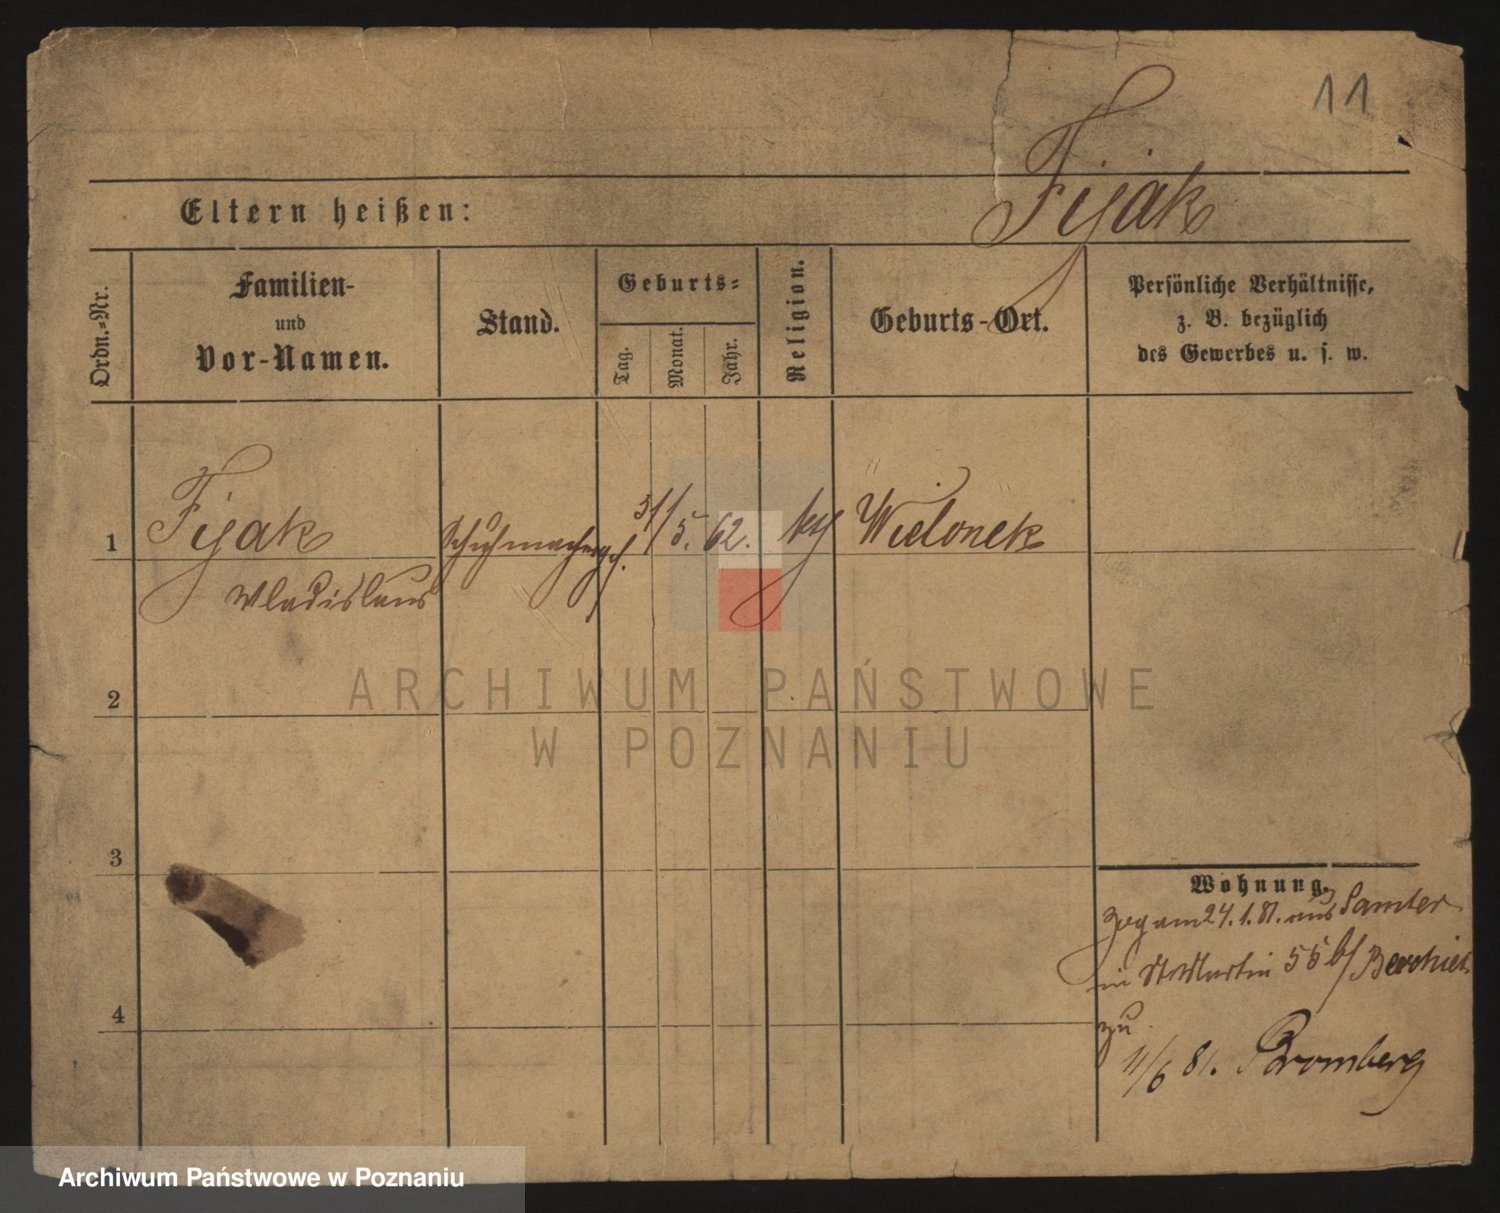 11
Fijak
Eltern heißen:
Ordn.=Nr.
Familien-
und
Vor-Namen.
Stand.
Geburts=
Tag.
Monat.
Jahr.
Religion.
Geburts-Ort.
Persönliche Verhältnisse,
z. B. bezüglich
des Gewerbes u. s. w.
1
Fijak
Wladislaus
Schuhmacherges.
31/5. 62.
kth
Wielonek
ARCHIWUM PAŃSTWOWE
W POZNANIU
2
3
4
Wohnung.
zog am 24.1.81. aus Samter
in St Martin 55 b/
zu
11/6 81. Bromberg
Archiwum Państwowe w Poznaniu